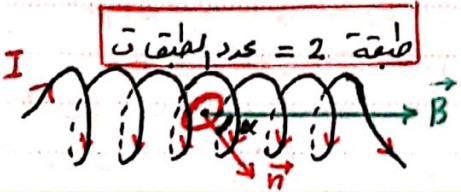 طبقة 2 = عدد الطبقات
I
B
α
n